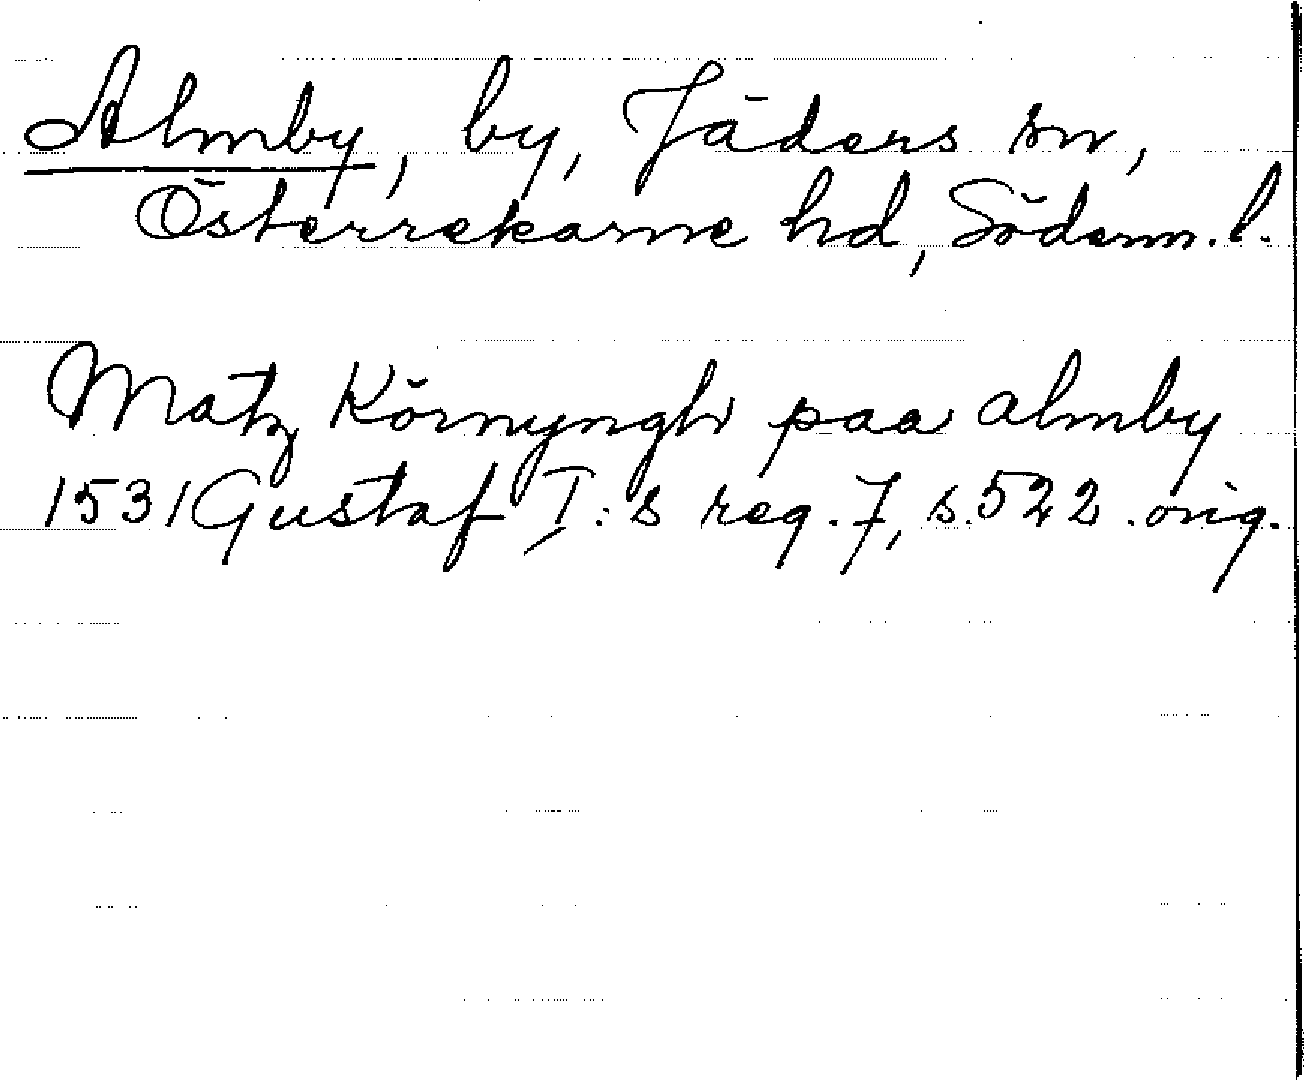 Almby, by, Jäders sn,
Österrekarne hd, Söderm. l.
Matz Környngh paa almby
1531 Gustaf I:s reg. 7, s. 522. orig.